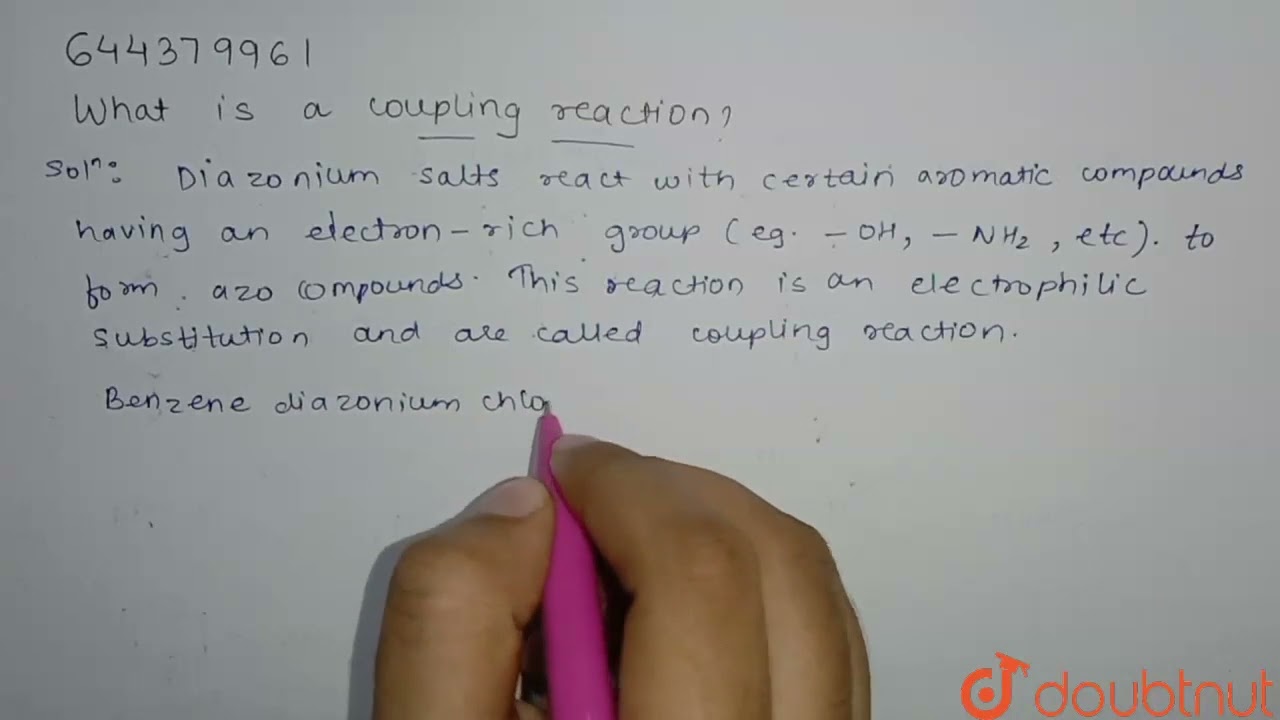 644379961
What is a coupling reaction?
Solⁿ: Diazonium salts react with certain aromatic compounds
having an electron-rich group (eg. -OH, -NH₂, etc). to
form. azo compounds. This reaction is an electrophilic
substitution and are called coupling reaction.
Benzene diazonium chlo
doubtnut